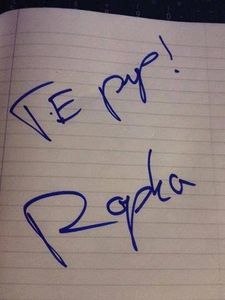 T.E pup!
Ropka